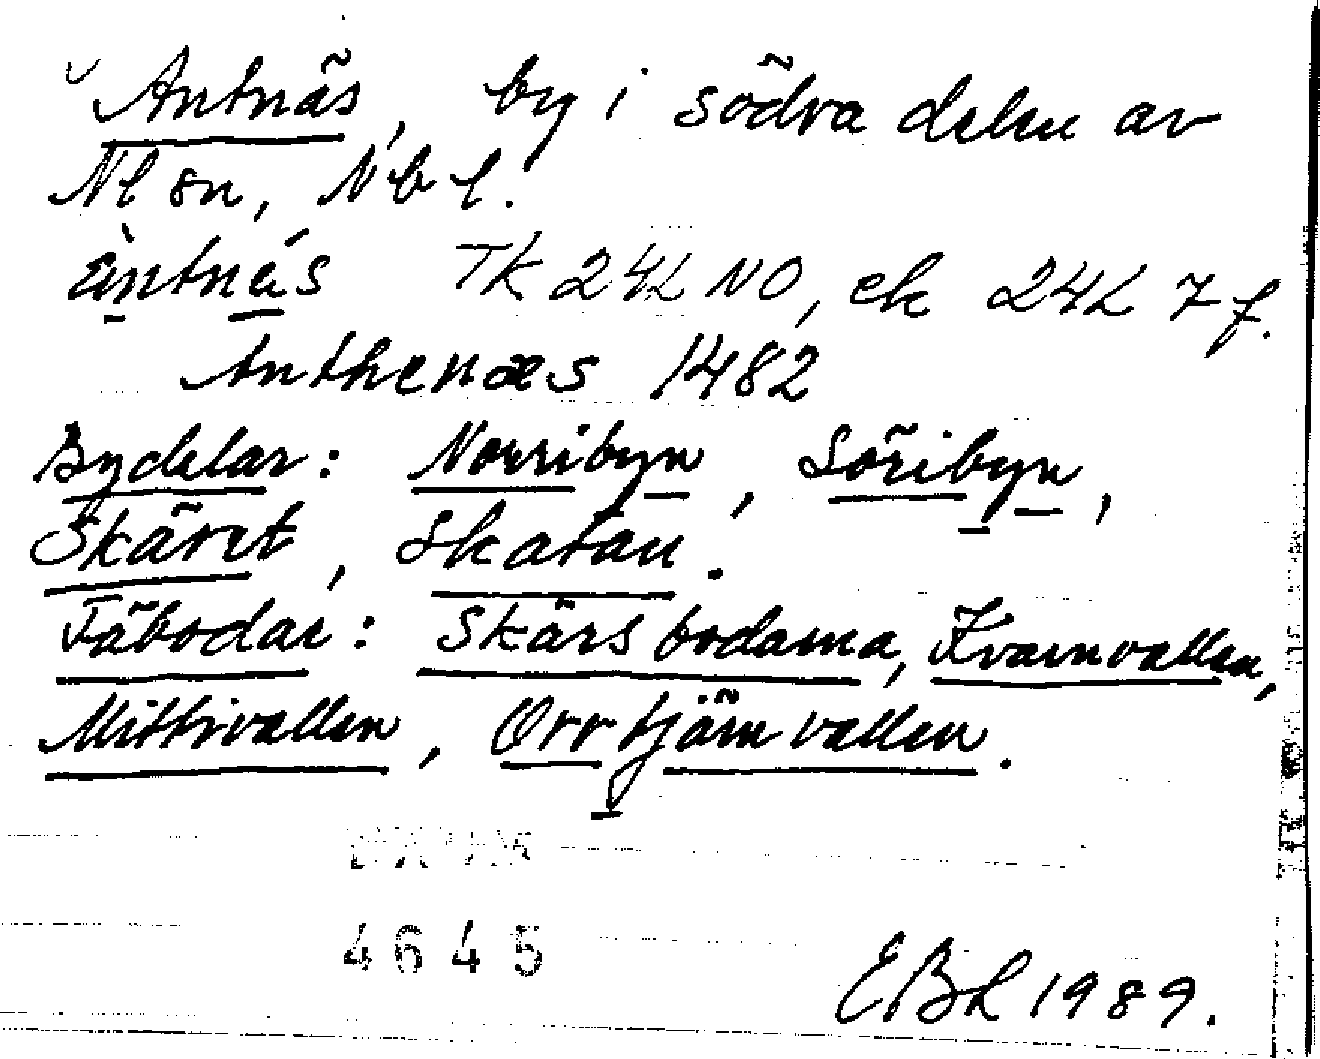 Antnäs, by i södra delen av
Nl sn, Nb l.
àntnás Tk 24L NO, ek 24L 7 f.
Anthenæs 1482
Bydelar: Norribyn, Söribyn,
Skäret, Skatan.
Fäbodar: Skärsbodarna, Kvarnvallen,
Mittivallen, Orrtjärnvallen.
4645
EBL 1989.